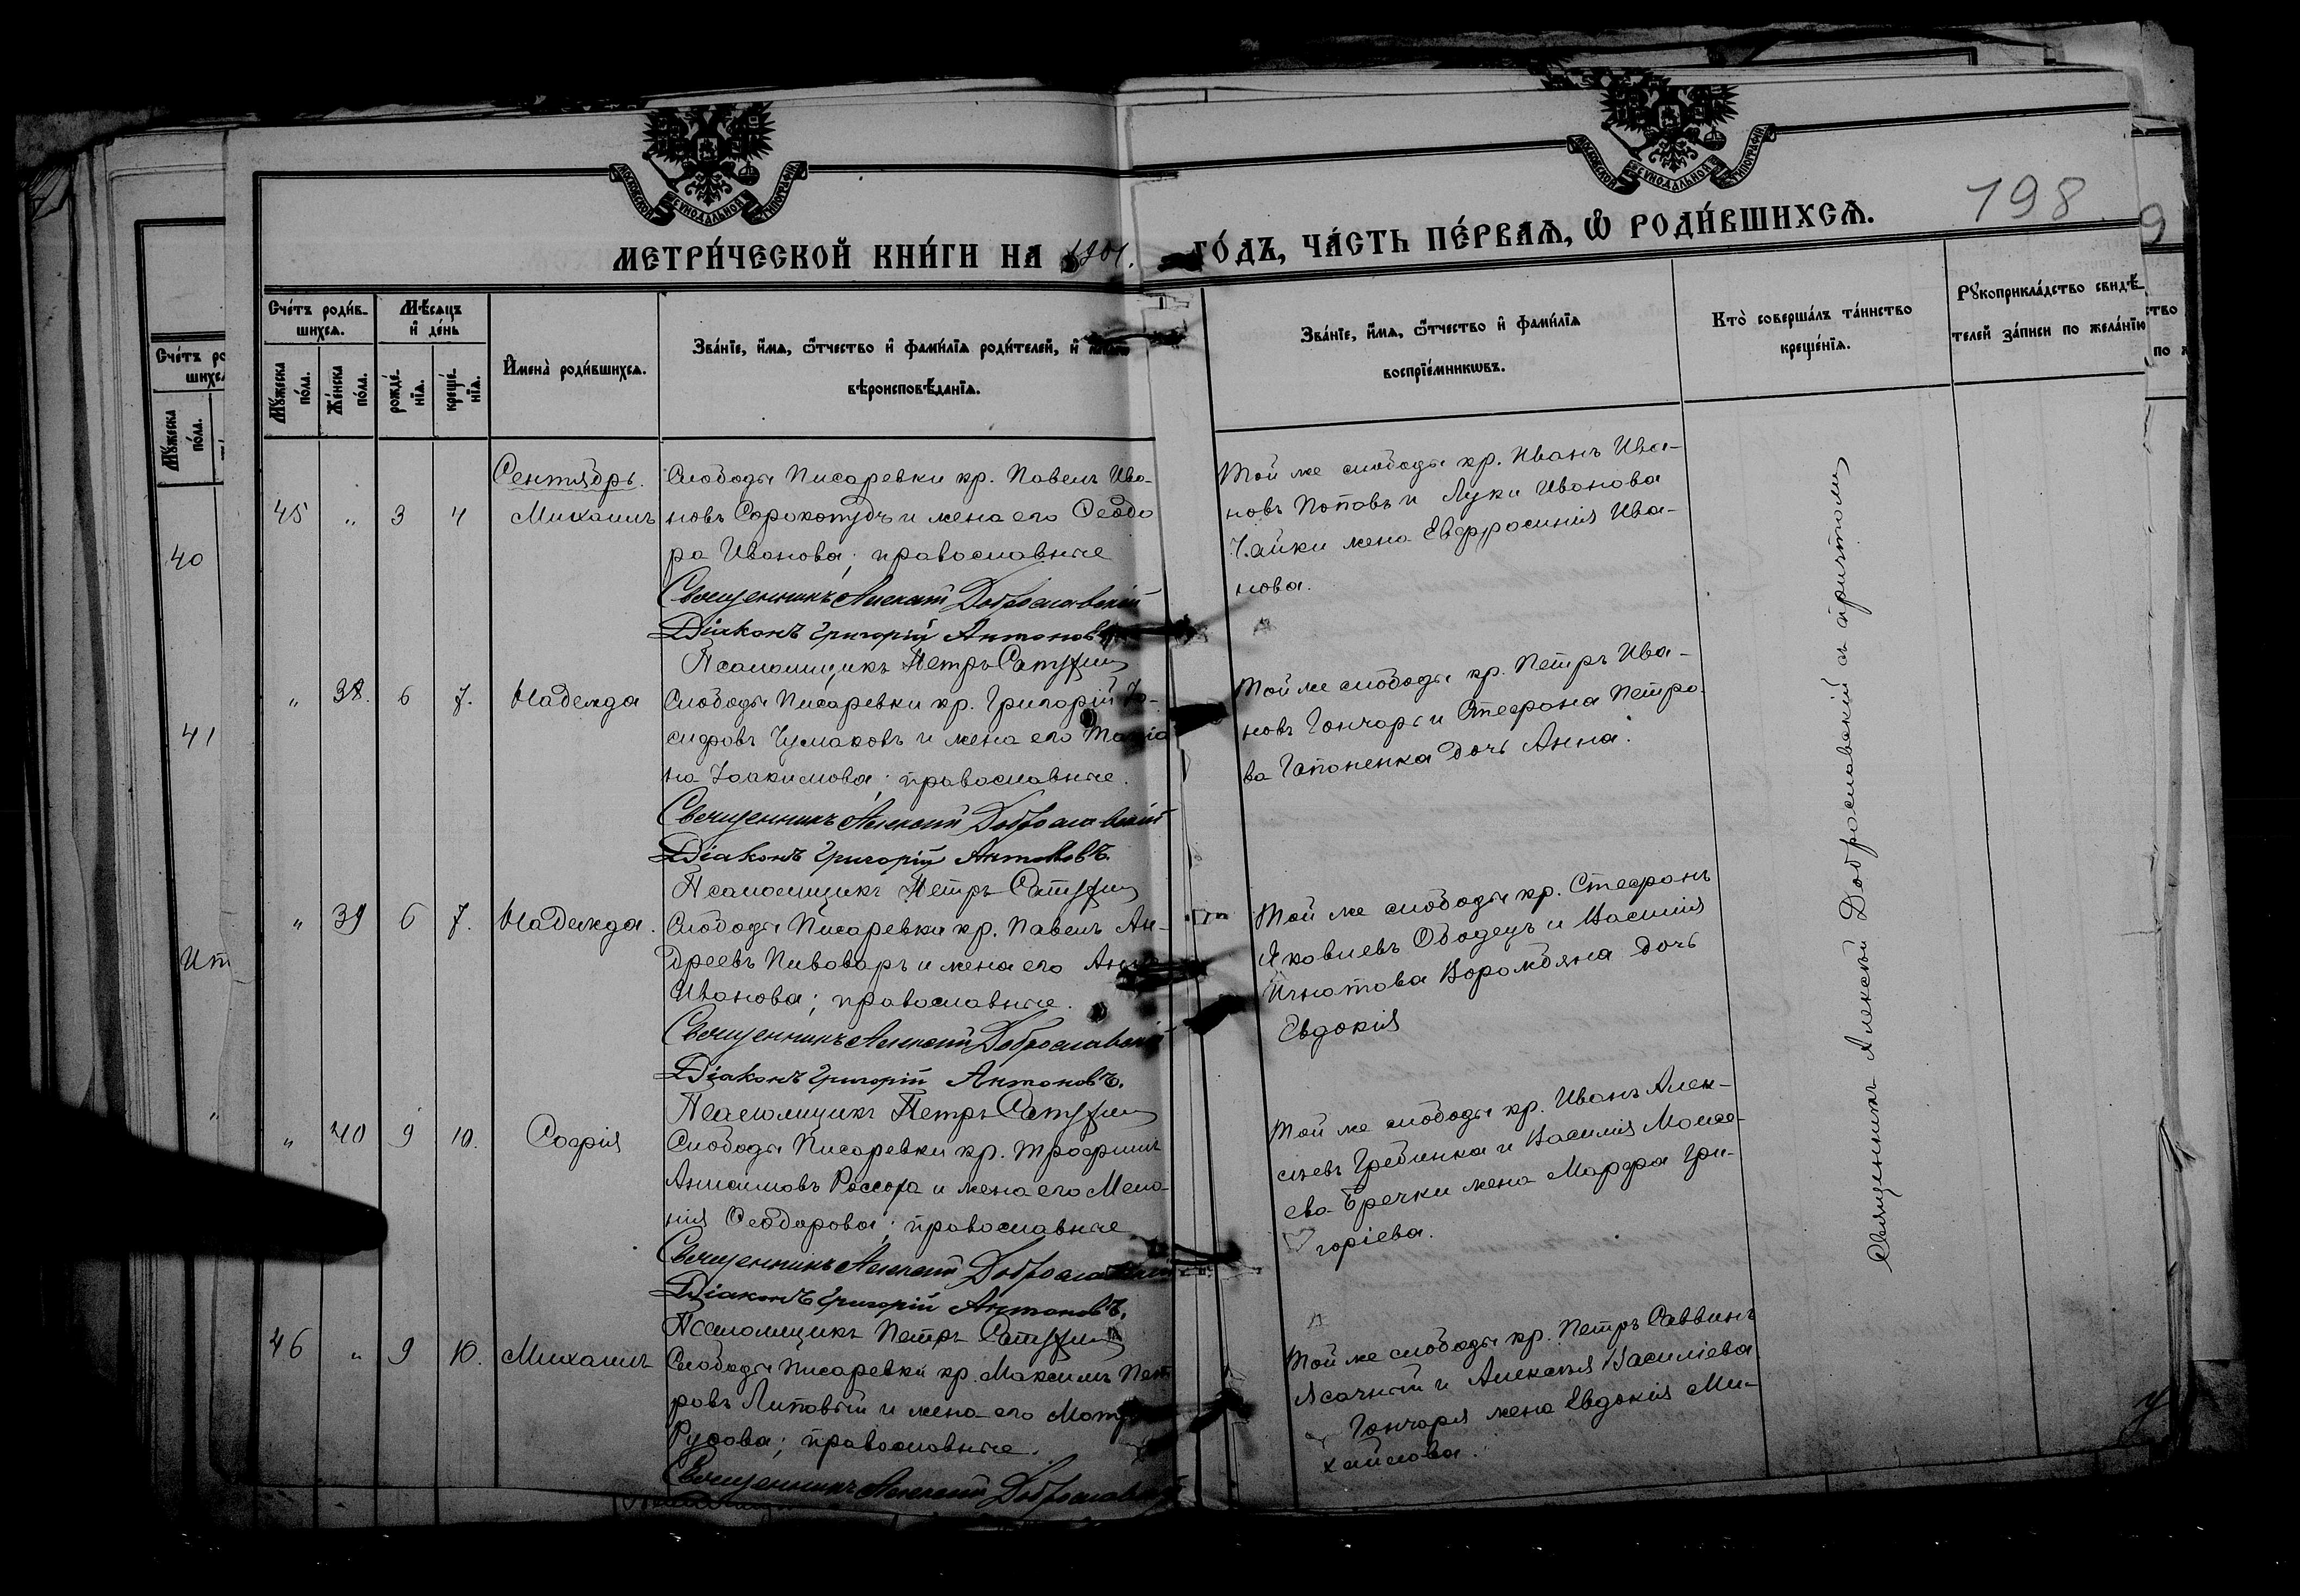 МЕТРИ́ЧЕСКОЙ КНИ́ГИ НА 1901. ГО́ДЪ, ЧА́СТЬ ПЕ́РВАѦ, Ѿ РОДИ́ВШИХСѦ.
198
Сче́тъ роди́в-
шихсѧ.
Мѣ́сѧцъ
и҆ де́нь
Мꙋ́жеска
по́ла.
Же́нска
по́ла.
рожде́-
нїѧ.
креще́-
нїѧ.
И҆мена̀ роди́вшихсѧ.
Зва́нїе, и҆́мѧ, ѻ҆́тчество и҆ фами́лїѧ роди́телей, и҆
вѣроисповѣ́данїѧ.
Зва́нїе, и҆́мѧ, ѻ҆́тчество и҆ фами́лїѧ
воспрїе́мникѡвъ.
Кто̀ соверша́лъ та́инство
креще́нїѧ.
Рꙋкоприкла́дство свидѣ́-
телей за́писи по жела́нїю
Сентябрь.
45 " 3 4 Михаилъ
Слободы Писаревки кр. Павелъ Ива-
новъ Сорокотудъ и жена его Ѳеодо
ра Иванова; православные
Священникъ Алексій Доброславскій
Діаконъ Григорій Антоновъ
Псаломщикъ Петръ
Той же слободы кр. Иванъ Ива-
новъ Поповъ и Луки Иванова
Чайки жена Евфросинія Ива-
нова.
" 38. 6 7. Надежда
Слободы Писаревки кр. Григорій Іо-
сифовъ Чумаковъ и жена его
на Іоакимова; православные.
Священникъ Алексій Доброславскій
Діаконъ Григорій Антоновъ.
Псаломщикъ Петръ
Той же слободы кр. Петръ Ива-
новъ Гончаръ и Стефана Петро-
ва Гапоненка дочь Анна.
" 39 6 7. Надежда.
Слободы Писаревки кр. Павелъ Ан-
дреевъ Пивоваръ и жена его Анна
Иванова; православные.
Священникъ Алексій Доброславскій
Діаконъ Григорій Антоновъ.
Псаломщикъ Петръ
Той же слободы кр. Стефанъ
Яковлевъ Ободецъ и Василія
Игнатова Ворожбяна дочь
Евдокія
" 40 9 10. Софія
Слободы Писаревки кр. Трофимъ
Анисимовъ Россоха и жена его Мела-
нія Ѳеодорова; православные
Священникъ Алексій Доброславскій
Діаконъ Григорій Антоновъ.
Псаломщикъ Петръ
Той же слободы кр. Иванъ Алек-
сѣевъ Гребинка и Василія Моисе-
ева Бречки жена Марфа Гри-
горіева.
46 " 9 10. Михаилъ
Слободы Писаревки кр. Максимъ Пет
ровъ Липовый и жена его
; православные.
Священникъ Алексій Доброславскій
Той же слободы кр. Петръ Саввинъ
Ясачный и Алексѣя Василіева
Гончаря жена Евдокія Ми-
хайлова.
Священникъ Алексій Доброславскій съ причтомъ
40
41